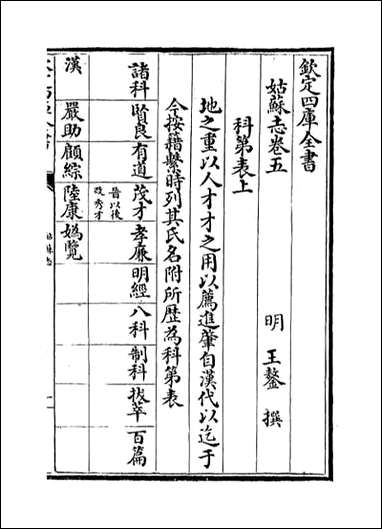 欽定四庫全書
姑蘇志卷五
明 王鏊 撰
科第表上
地之重以人才才之用以薦進肇自漢代以迄于
今按籍繫時列其氏名附所歴為科第表
諸科 賢良 有道 茂才 晉以後改秀才 孝廉 明經 八科 制科 拔萃 百篇
漢 嚴助 顧綜 陸康 媯覽
姑蘇志